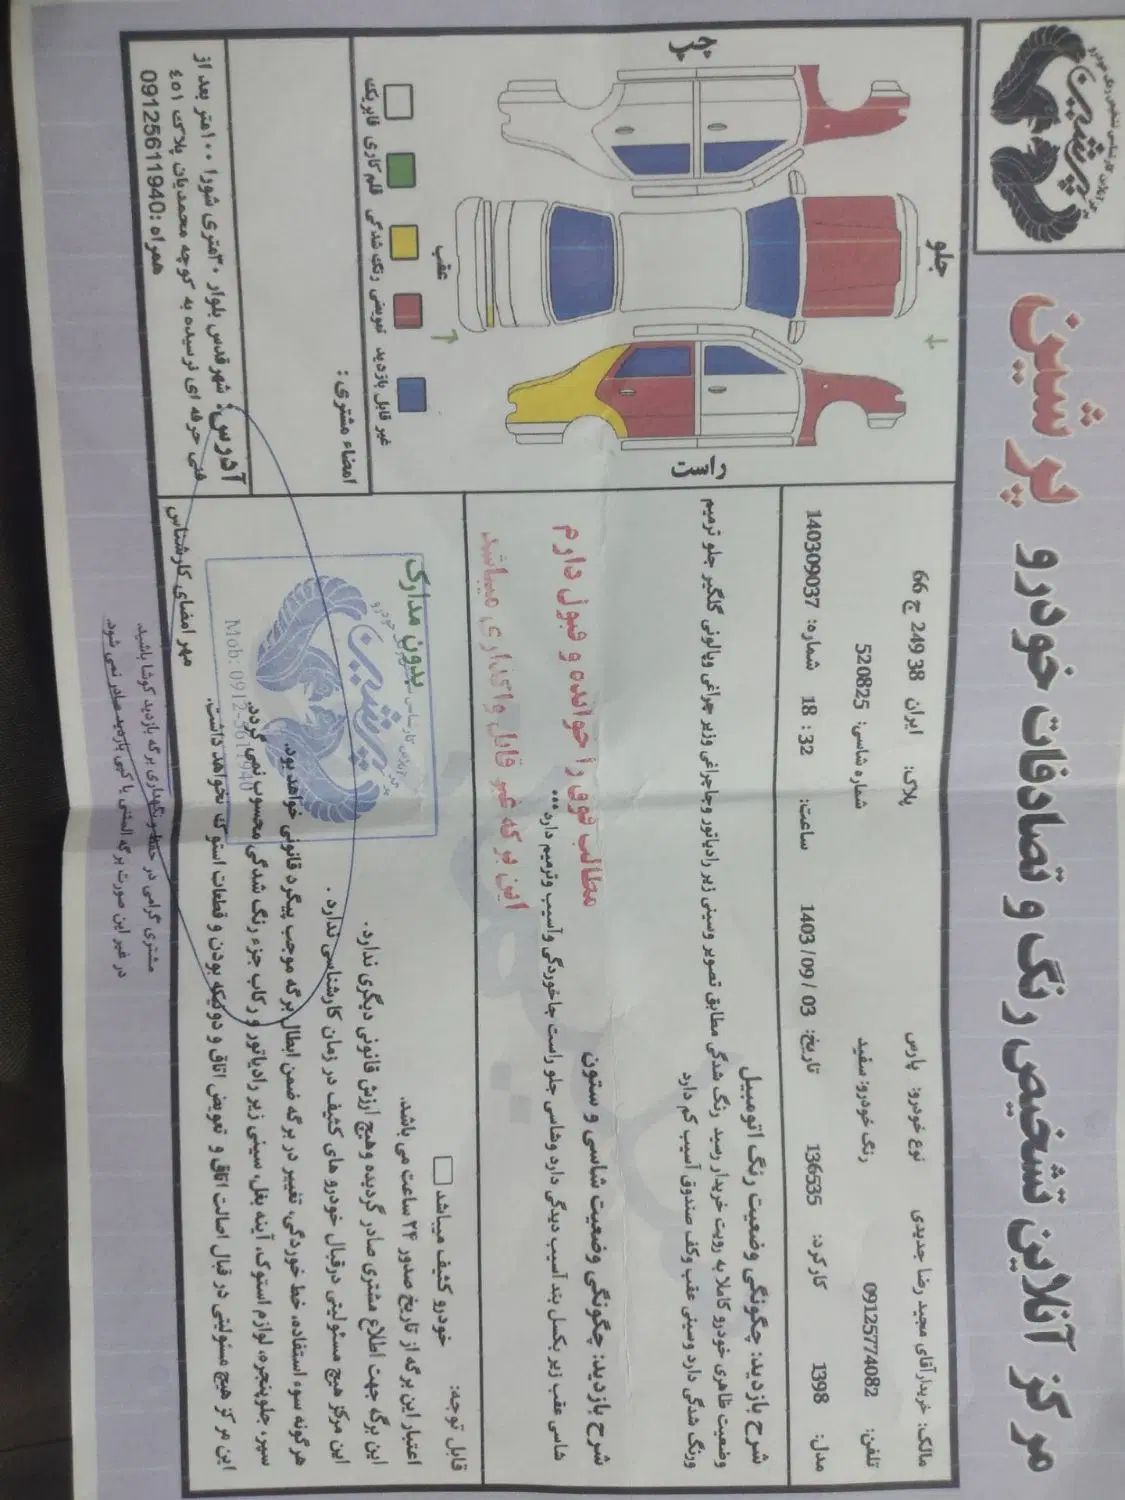 مرکز آنلاین تشخیص رنگ و تصادفات خودرو پرشین
مالک: خریدار آقای مجید رضا جدیدی نوع خودرو: پارس پلاک: ایران 66 ج 249 38
تلفن: 09125774082 رنگ خودرو: سفید شماره شاسی: 520825
مدل: 1398 کارکرد: 136535 تاریخ: 1403/09/03 ساعت: 18:32 شماره: 140309037
شرح بازدید: چگونگی وضعیت رنگ اتومبیل
وضعیت ظاهری خودرو کاملا به رویت خریدار رسید رنگ شدگی مطابق تصویر وسینی زیر رادیاتور وجاچراغی وزیر چراغی وپالونی گلگیر جلو ترمیم
ورنگ شدگی دارد وسینی عقب وکف صندوق آسیب کم دارد
شرح بازدید: چگونگی وضعیت شاسی و ستون
شاسی عقب زیر بکسل بند آسیب دیدگی دارد وشاسی جلو راست جاخوردگی وآسیب وترمیم دارد...
مطالب فوق را خوانده و قبول دارم
این برگه غیر قابل واگذاری میباشد
قابل توجه: خودرو کثیف میباشد
بدون مدارک
اعتبار این برگه از تاریخ صدور ۲۴ ساعت می باشد.
این برگه جهت اطلاع مشتری صادر گردیده وهیچ ارزش قانونی دیگری ندارد.
این مرکز هیچ مسئولیتی درقبال خودرو های کثیف در زمان کارشناسی ندارد.
هرگونه سوء استفاده، خط خوردگی، تغییر در برگه ضمن ابطال برگه موجب پیگرد قانونی خواهد بود.
سپر، جلوپنجره، لوازم استوک، آینه بغل، سینی زیر رادیاتور و رکاب جزء رنگ شدگی محسوب نمی گردد.
این مرکز هیچ مسئولیتی در قبال اصالت اتاق و تعویض اتاق و دوتیکه بودن و قطعات استوک نخواهد داشت.
مهر امضای کارشناس
پرشین
Mob: 0912-5611940
جلو
عقب
راست
چپ
فابریک
قلم کاری
رنگ شدگی
تعویض
غیر قابل بازدید
امضاء مشتری:
آدرس: شهرقدس بلوار ۳۰متری شورا ۱۰۰متر بعد از
فنی حرفه ای نرسیده به کوچه محمدیان پلاک ٤٥١
همراه: 09125611940
مشتری گرامی در حفظ و نگهداری برگه بازدید کوشا باشید.
در غیر این صورت برگه المثنی یا کپی بازدید صادر نمی شود.